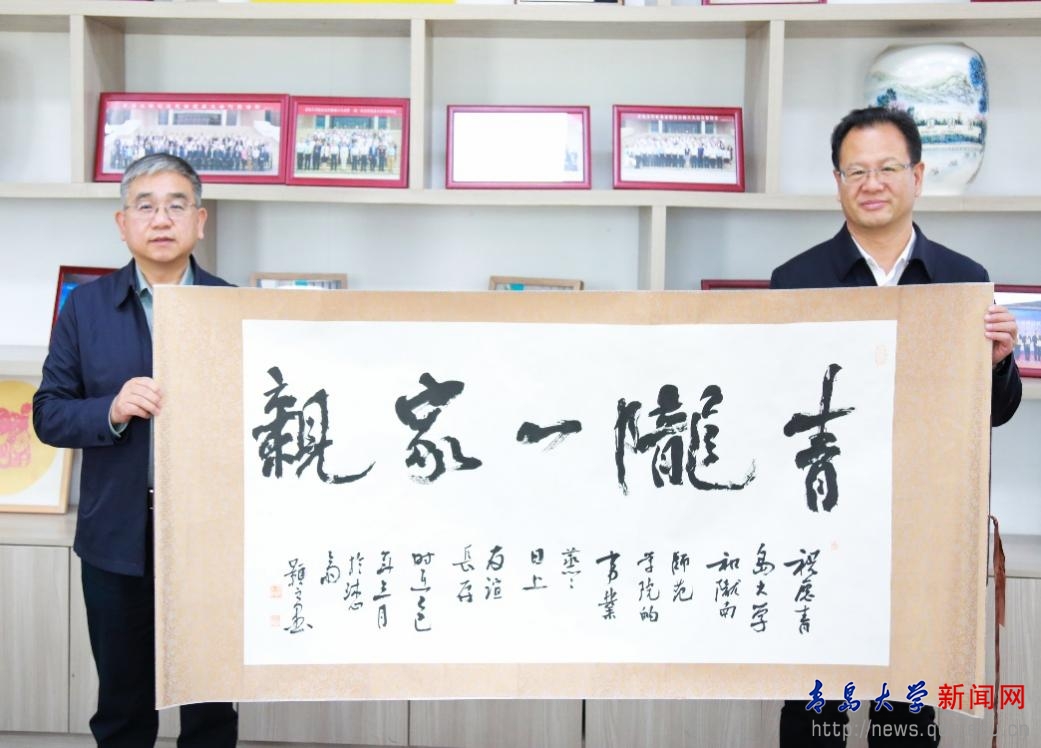 青隴一家親
祝愿青
島大学
和隴南
師范
学院的
事業
蒸々
日上
友谊
長存
时乙巳
年三月
青島大学新闻网
http://news.qu